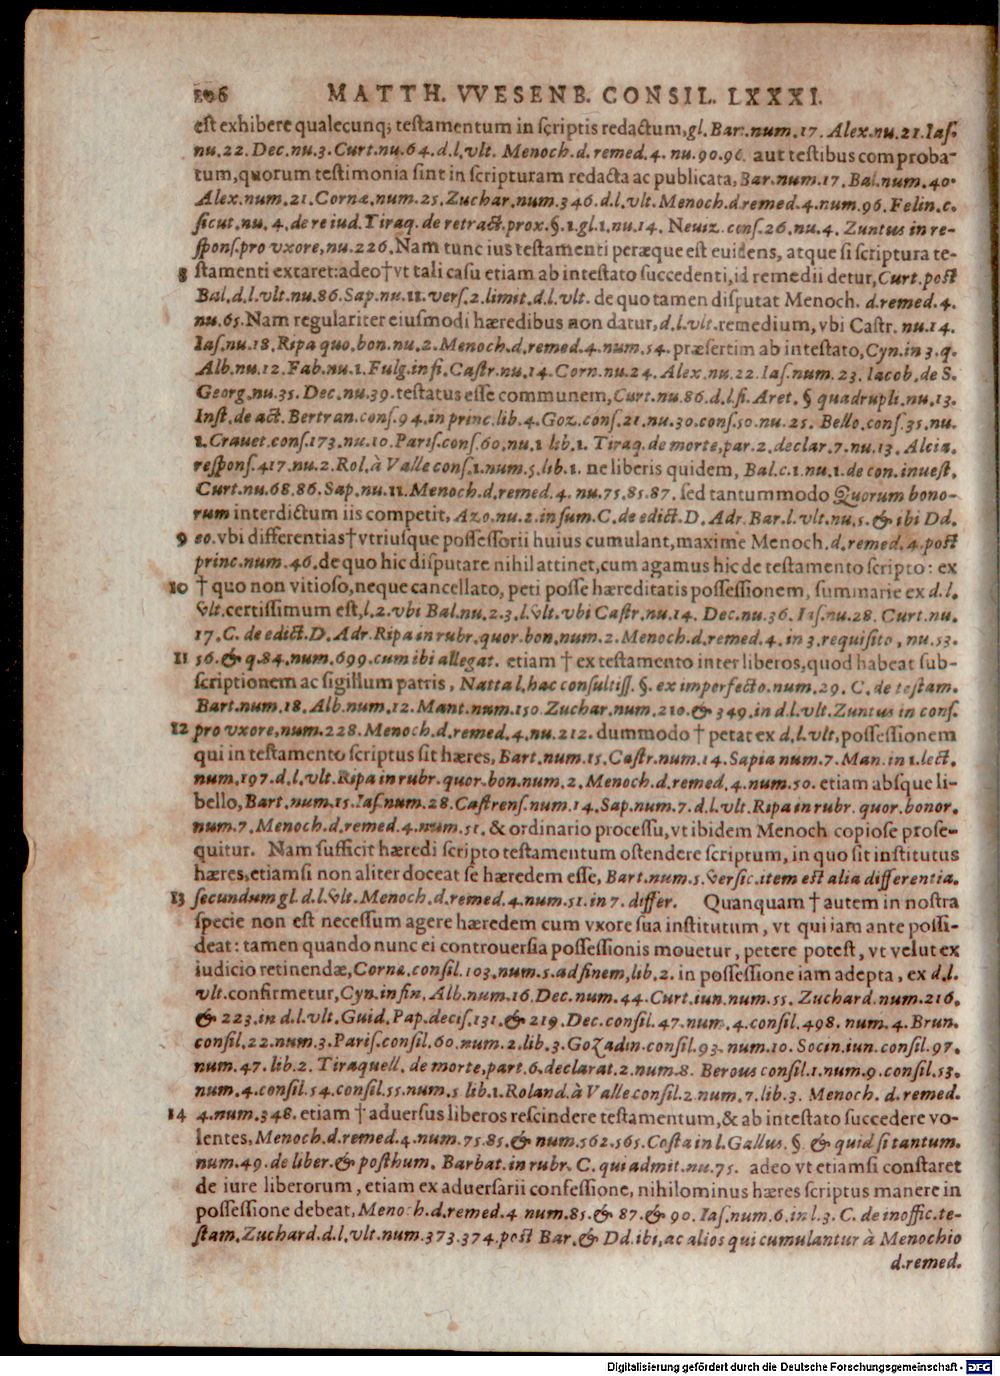 206 MATTH. VVESENB. CONSIL. LXXXI.
est exhibere qualecunq; testamentum in scriptis redactum, gl. Bar. num. 17. Alex. nu. 21. Ias.
nu. 22. Dec. nu. 3. Curt. nu. 64. d. l. vlt. Menoch. d. remed. 4. nu. 90. 96. aut testibus comproba-
tum, quorum testimonia sint in scripturam redacta ac publicata, Bar. num. 17. Bal. num. 40.
Alex. num. 21. Corne. num. 25. Zuchar. num. 346. d. l. vlt. Menoch. d. remed. 4. num. 96. Felin. c.
sicut. nu. 4. de re iud. Tiraq. de retract. prox. §. 1. gl. 1. nu. 14. Neuiz. cons. 26. nu. 4. Zuntus in re-
spons. pro vxore, nu. 226. Nam tunc ius testamenti peræque est euidens, atque si scriptura te-
8 stamenti extaret: adeo † vt tali casu etiam ab intestato succedenti, id remedii detur, Curt. post
Bal. d. l. vlt. nu. 86. Sap. nu. 11. vers. 2. limit. d. l. vlt. de quo tamen disputat Menoch. d. remed. 4.
nu. 65. Nam regulariter eiusmodi hæredibus non datur, d. l. vlt. remedium, vbi Castr. nu. 14.
Ias. nu. 18. Ripa quo. bon. nu. 2. Menoch. d. remed. 4. num. 54. præsertim ab intestato, Cyn. in 3. q.
Alb. nu. 12. Fab. nu. 1. Fulg. in fi. Castr. nu. 14. Corn. nu. 24. Alex. nu. 22. Ias. num. 23. Iacob. de S.
Georg. nu. 35. Dec. nu. 39. testatus esse communem, Curt. nu. 86. d. l. fi. Aret. § quadrupli. nu. 13.
Inst. de act. Bertran. cons. 94. in princ. lib. 4. Goz. cons. 21. nu. 30. cons. 50. nu. 25. Bello. cons. 35. nu.
1. Crauet. cons. 173. nu. 10. Paris. cons. 60. nu. 1 lib. 1. Tiraq. de morte, par. 2. declar. 7. nu. 13. Alcia.
respons. 417. nu. 2. Rol. à Valle cons. 1. num. 5. lib. 1. ne liberis quidem, Bal. c. 1. nu. 1. de con. inuest.
Curt. nu. 68. 86. Sap. nu. 11. Menoch. d. remed. 4. nu. 75. 85. 87. sed tantummodo Quorum bono-
rum interdictum iis competit, Azo. nu. 2. in sum. C. de edict. D. Adr. Bar. l. vlt. nu. 5. & ibi Dd.
9 eo. vbi differentias † vtriusque possessorii huius cumulant, maxime Menoch. d. remed. 4. post
princ. num. 46. de quo hic disputare nihil attinet, cum agamus hic de testamento scripto: ex
10 † quo non vitioso, neque cancellato, peti posse hæreditatis possessionem, summarie ex d. l.
vlt. certissimum est, l. 2. vbi Bal. nu. 2. 3. l. vlt. vbi Castr. nu. 14. Dec. nu. 36. Ias. nu. 28. Curt. nu.
17. C. de edict. D. Adr. Ripa in rubr. quor. bon. num. 2. Menoch. d. remed. 4. in 3. requisito, nu. 53.
11 56. & q. 84. num. 699. cum ibi allegat. etiam † ex testamento inter liberos, quod habeat sub-
scriptionem ac sigillum patris, Natta l. hac consultiss. §. ex imperfecto. num. 29. C. de testam.
Bart. num. 18. Alb. num. 12. Mant. num. 150 Zuchar. num. 210. & 349. in d. l. vlt. Zuntus in cons.
12 pro vxore, num. 228. Menoch. d. remed. 4. nu. 212. dummodo † petat ex d. l. vlt, possessionem
qui in testamento scriptus sit hæres, Bart. num. 15. Castr. num. 14. Sapia num. 7. Man. in 1. lect.
num. 197. d. l. vlt. Ripa in rubr. quor. bon. num. 2. Menoch. d. remed. 4. num. 50. etiam absque li-
bello, Bart. num. 15. Ias. num. 28. Castrens. num. 14. Sap. num. 7. d. l. vlt. Ripa in rubr. quor. bonor.
num. 7. Menoch. d. remed. 4. num. 51. & ordinario processu, vt ibidem Menoch copiose prose-
quitur. Nam sufficit hæredi scripto testamentum ostendere scriptum, in quo sit institutus
hæres, etiamsi non aliter doceat se hæredem esse, Bart. num. 5. versic. item est alia differentia.
13 secundum gl. d. l. vlt. Menoch. d. remed. 4. num. 51. in 7. differ. Quanquam † autem in nostra
specie non est necessum agere hæredem cum vxore sua institutum, vt qui iam ante possi-
deat: tamen quando nunc ei controuersia possessionis mouetur, petere potest, vt velut ex
iudicio retinendæ, Corne. consil. 103. num. 5. ad finem, lib. 2. in possessione iam adepta, ex d. l.
vlt. confirmetur, Cyn. in fin. Alb. num. 16. Dec. num. 44. Curt. iun. num. 55. Zuchard. num. 216.
& 223. in d. l. vlt. Guid. Pap. decis. 131. & 219. Dec. consil. 47. num. 4. consil. 498. num. 4. Brun.
consil. 22. num. 3. Paris. consil. 60. num. 2. lib. 3. Gozadin. consil. 93. num. 10. Socin. iun. consil. 97.
num. 47. lib. 2. Tiraquell. de morte, part. 6. declarat. 2. num. 8. Berous consil. 1. num. 9. consil. 53.
num. 4. consil. 54. consil. 55. num. 5 lib. 1. Roland. à Valle consil. 2. num. 7. lib. 3. Menoch. d. remed.
14 4. num. 348. etiam † aduersus liberos rescindere testamentum, & ab intestato succedere vo-
lentes, Menoch. d. remed. 4. num. 75. 85. & num. 562. 565. Costa in l. Gallus. §. & quid si tantum.
num. 49. de liber. & posthum. Barbat. in rubr. C. qui admit. nu. 75. adeo vt etiamsi constaret
de iure liberorum, etiam ex aduersarii confessione, nihilominus hæres scriptus manere in
possessione debeat, Menoch. d. remed. 4 num. 85. & 87. & 90. Ias. num. 6. in l. 3. C. de inoffic. te-
stam. Zuchard. d. l. vlt. num. 373. 374. post Bar. & Dd. ibi, ac alios qui cumulantur à Menochio
d. remed.
Digitalisierung gefördert durch die Deutsche Forschungsgemeinschaft - DFG